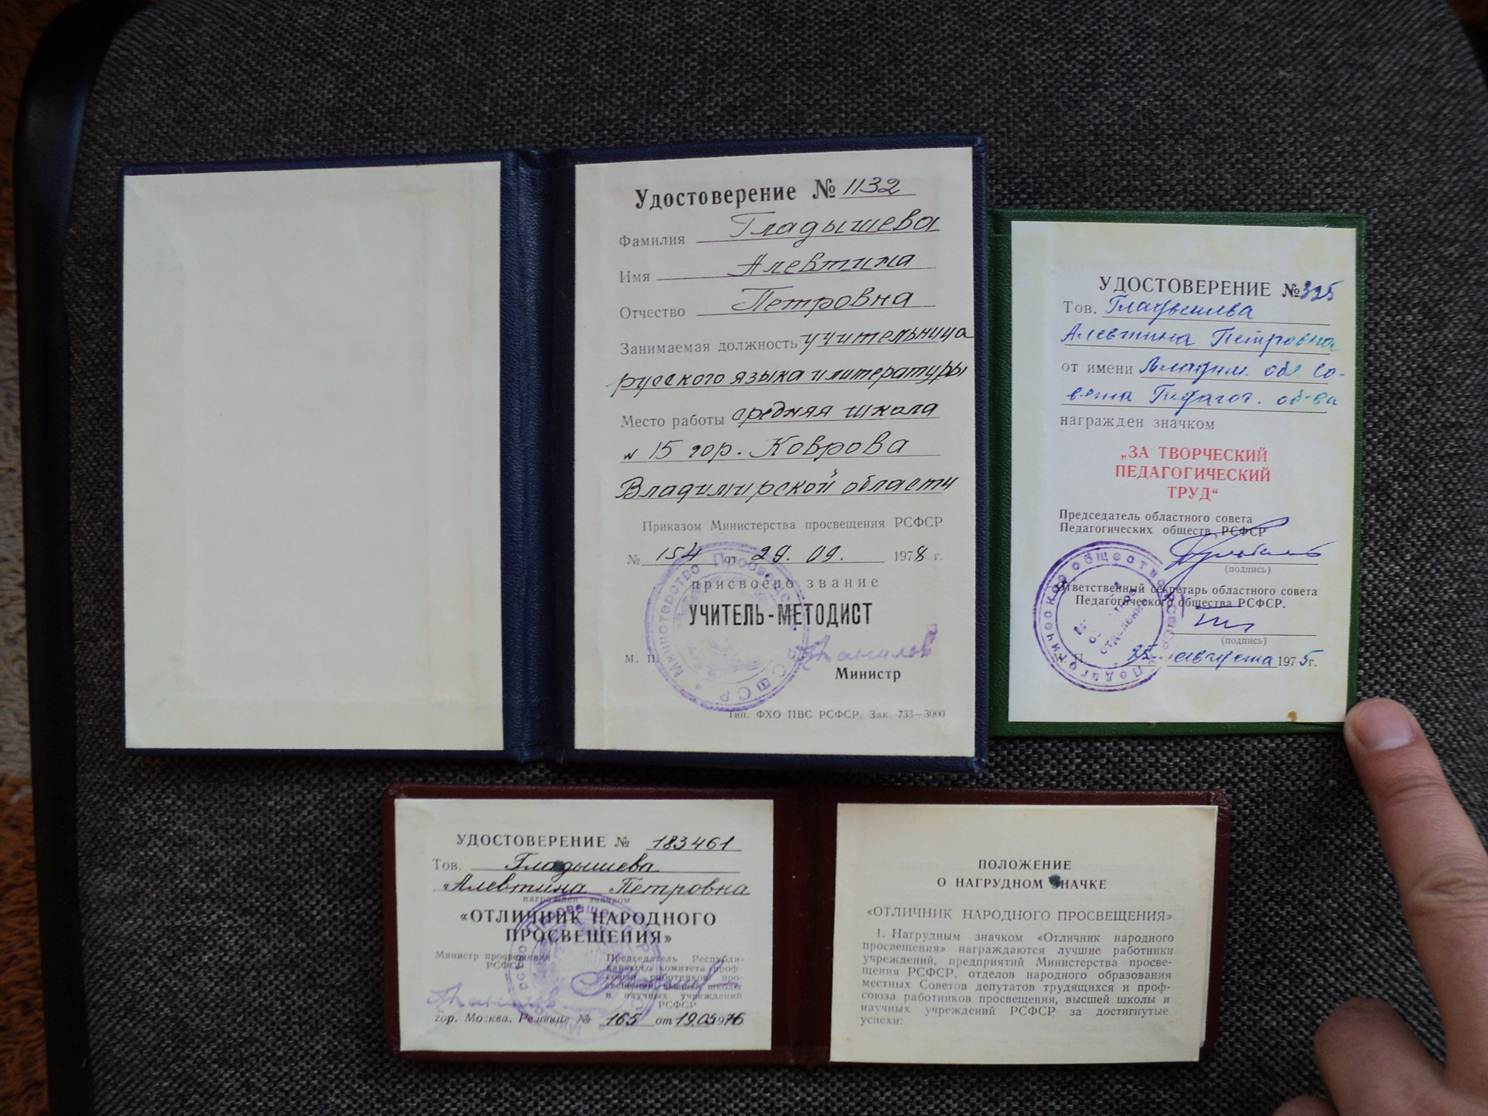 Удостоверение № 1132
Фамилия Гладышева
Имя Алевтина
Отчество Петровна
Занимаемая должность учительница
русского языка и литературы
Место работы средняя школа
№ 15 гор. Коврова
Владимирской области
Приказом Министерства просвещения РСФСР
№ 154 от 29. 09. 1978 г.
присвоено звание
УЧИТЕЛЬ-МЕТОДИСТ
М. П.
Министр
Тип. ФХО ПВС РСФСР. Зак. 733—3000
УДОСТОВЕРЕНИЕ № 325
Тов. Гладышева
Алевтина Петровна
от имени Владим. обл. Со-
вета Педагог. об-ва
награжден значком
„ЗА ТВОРЧЕСКИЙ
ПЕДАГОГИЧЕСКИЙ
ТРУД“
Председатель областного совета
Педагогических обществ РСФСР
(подпись)
Ответственный секретарь областного совета
Педагогического общества РСФСР.
(подпись)
августа 1975г.
УДОСТОВЕРЕНИЕ № 183461
Тов. Гладышева
Алевтина Петровна
награжден значком
«ОТЛИЧНИК НАРОДНОГО
ПРОСВЕЩЕНИЯ»
Министр просвещения
РСФСР
Председатель Республи-
канского комитета проф-
союза работников про-
свещения, высшей школы
и научных учреждений
РСФСР
гор. Москва. Решение № 165 от 19.05.1976
ПОЛОЖЕНИЕ
О НАГРУДНОМ ЗНАЧКЕ
«ОТЛИЧНИК НАРОДНОГО ПРОСВЕЩЕНИЯ»
1. Нагрудным значком «Отличник народного
просвещения» награждаются лучшие работники
учреждений, предприятий Министерства просве-
щения РСФСР, отделов народного образования
местных Советов депутатов трудящихся и проф-
союза работников просвещения, высшей школы и
научных учреждений РСФСР за достигнутые
успехи: